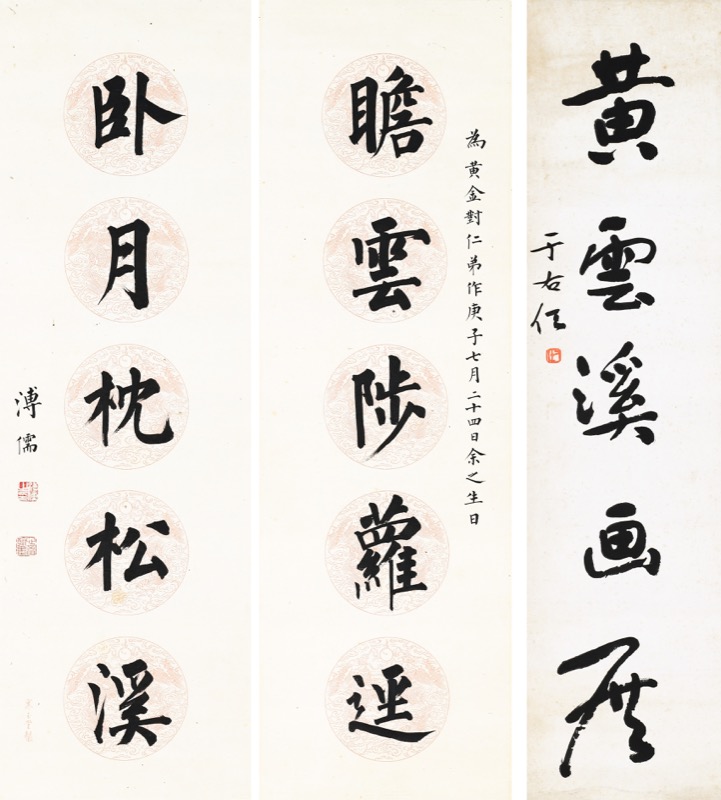 黄雲溪画展
于右任
為黃金對仁弟作庚子七月二十四日余之生日
瞻雲陟蘿逕
卧月枕松溪
溥儒